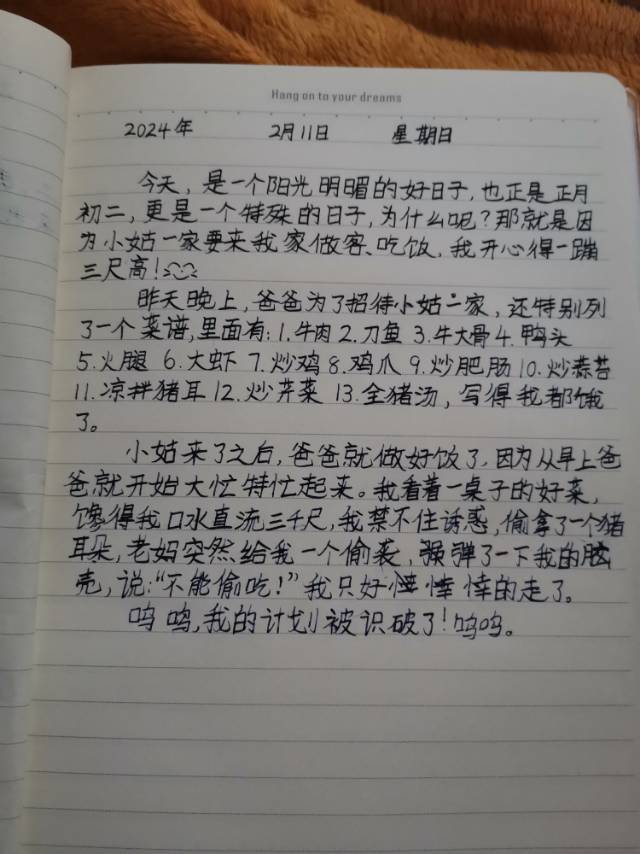 Hang on to your dreams
2024年 2月11日 星期日
今天，是一个阳光明媚的好日子，也正是正月
初二，更是一个特殊的日子，为什么呢？那就是因
为小姑一家要来我家做客、吃饭，我开心得一蹦
三尺高！
昨天晚上，爸爸为了招待小姑一家，还特别列
了一个菜谱，里面有：1.牛肉 2.刀鱼 3.牛大骨 4.鸭头
5.火腿 6.大虾 7.炒鸡 8.鸡爪 9.炒肥肠 10.炒蒜苔
11.凉拌猪耳 12.炒芹菜 13.全猪汤，写得我都饿
了。
小姑来了之后，爸爸就做好饭了，因为从早上爸
爸就开始大忙特忙起来。我看着一桌子的好菜，
馋得我口水直流三千尺，我禁不住诱惑，偷拿了一个猪
耳朵，老妈突然给我一个偷袭，强弹了一下我的脑
壳，说：“不能偷吃！”我只好悻悻的走了。
呜呜，我的计划被识破了！呜呜。